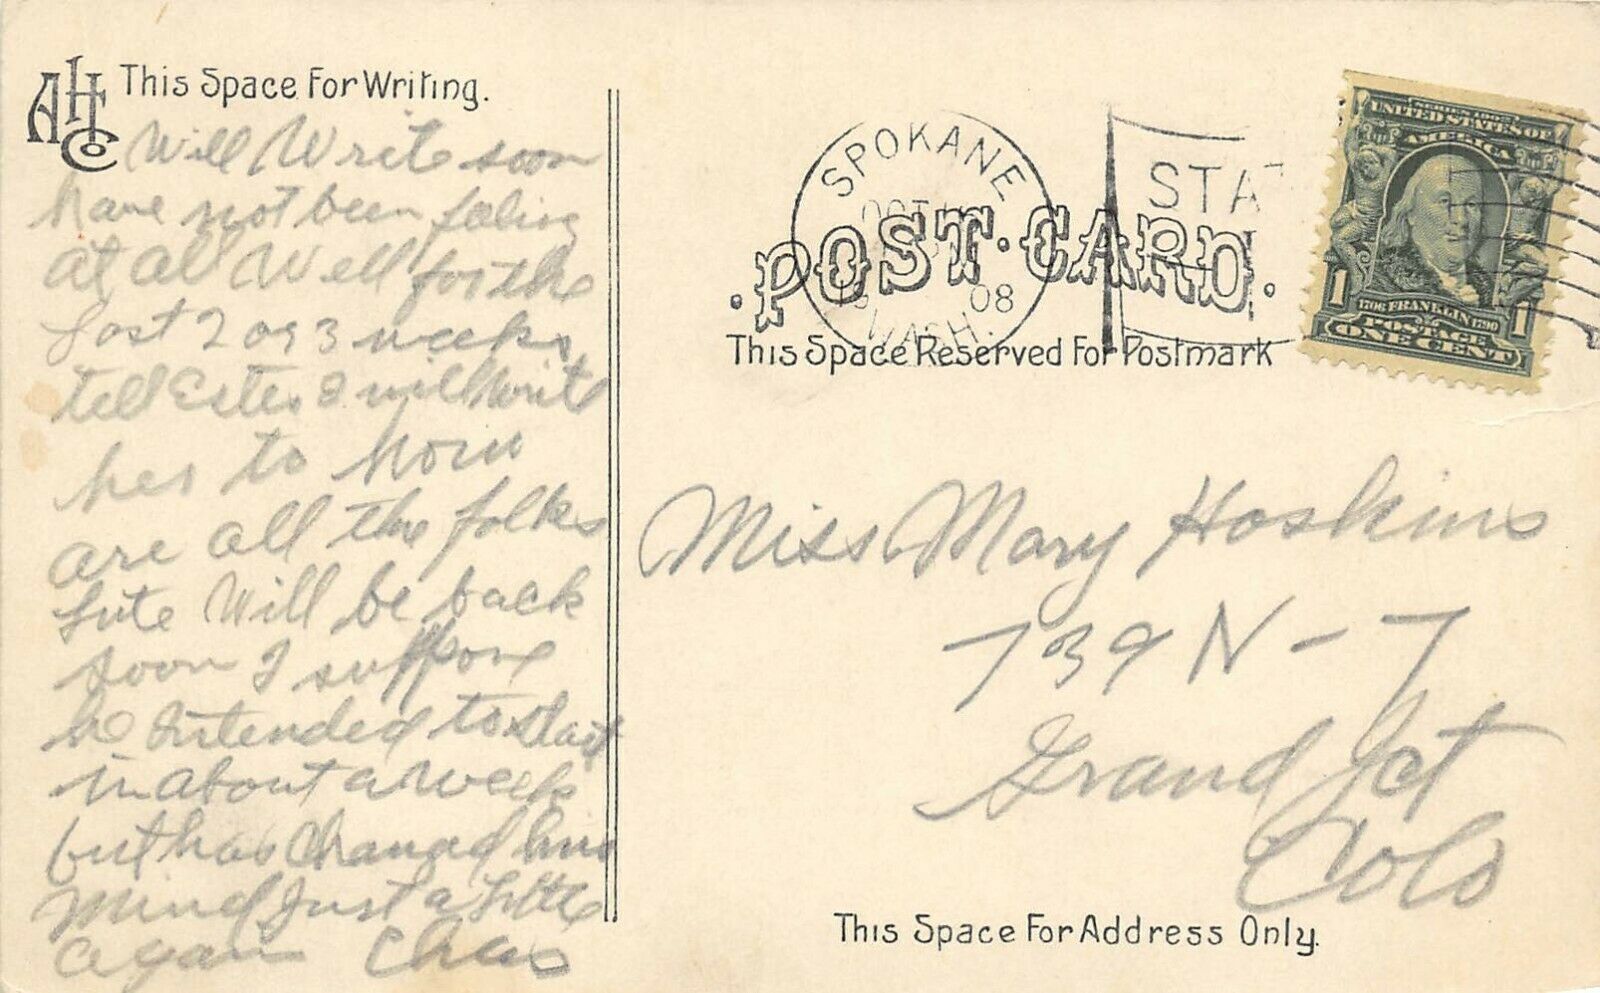 AHCo
This Space For Writing.
Will Write soon
have not been feling
at all Well for the
Last 2 or 3 weeks
tell Ester I will write
her to
are all the folks
Lute Will be back
soon I suppose
he Intended to start
in about a week
but has Changed his
Mind Just a Little
again Chas
SPOKANE
OCT
08
WASH.
STAT
POST·CARD.
This Space Reserved For Postmark
UNITED STATES OF
AMERICA
1706 FRANKLIN 1790
POSTAGE
1 ONE CENT 1
Miss Mary Hoskins
739 N-7
Grand Jct
Colo
This Space For Address Only.